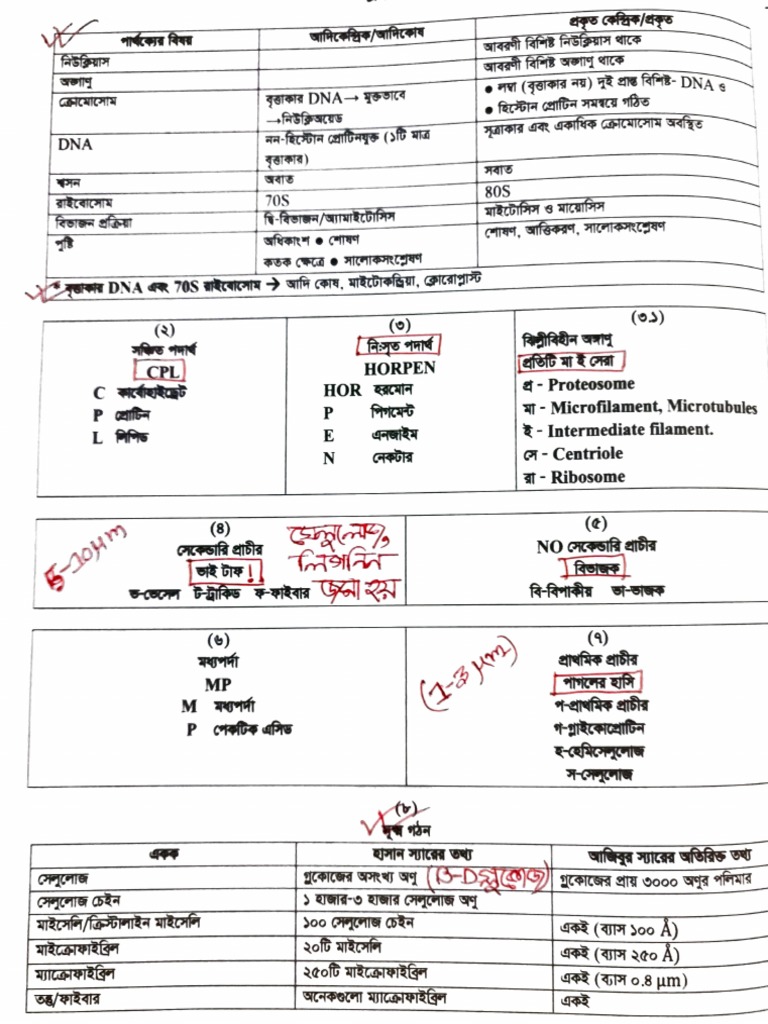 পার্থক্যের বিষয় আদিকেন্দ্রিক/আদিকোষ প্রকৃত কেন্দ্রিক/প্রকৃত
নিউক্লিয়াস আবরণী বিশিষ্ট নিউক্লিয়াস থাকে
অঙ্গাণু আবরণী বিশিষ্ট অঙ্গাণু থাকে
ক্রোমোসোম বৃত্তাকার DNA→ মুক্তভাবে ● লম্বা (বৃত্তাকার নয়) দুই প্রান্ত বিশিষ্ট- DNA ও
→নিউক্লিঅয়েড ● হিস্টোন প্রোটিন সমন্বয়ে গঠিত
DNA নন-হিস্টোন প্রোটিনযুক্ত (১টি মাত্র সূত্রাকার এবং একাধিক ক্রোমোসোম অবস্থিত
বৃত্তাকার)
শ্বসন অবাত সবাত
রাইবোসোম 70S 80S
বিভাজন প্রক্রিয়া দ্বি-বিভাজন/অ্যামাইটোসিস মাইটোসিস ও মায়োসিস
পুষ্টি অধিকাংশ ● শোষণ শোষণ, আত্তিকরণ, সালোকসংশ্লেষণ
কতক ক্ষেত্রে ● সালোকসংশ্লেষণ
* বৃত্তাকার DNA এবং 70S রাইবোসোম → আদি কোষ, মাইটোকন্ড্রিয়া, ক্লোরোপ্লাস্ট
(২)
সঞ্চিত পদার্থ
CPL
C কার্বোহাইড্রেট
P প্রোটিন
L লিপিড
(৩)
নিঃসৃত পদার্থ
HORPEN
HOR হরমোন
P পিগমেন্ট
E এনজাইম
N নেকটার
(৩.১)
ঝিল্লীবিহীন অঙ্গাণু
প্রতিটি মা ই সেরা
প্র - Proteosome
মা - Microfilament, Microtubules
ই - Intermediate filament.
সে - Centriole
রা - Ribosome
5-10μm
(৪)
সেকেন্ডারি প্রাচীর
ভাই টাফ !!
ভ-ভেসেল ট-ট্রাকিড ফ-ফাইবার
সেলুলোজ,
লিগনিন
জমা হয়
(৫)
NO সেকেন্ডারি প্রাচীর
বিভাজক
বি-বিপাকীয় ভা-ভাজক
(৬)
মধ্যপর্দা
MP
M মধ্যপর্দা
P পেকটিক এসিড
(1-3 μm)
(৭)
প্রাথমিক প্রাচীর
পাগলের হাসি
প-প্রাথমিক প্রাচীর
গ-গ্লাইকোপ্রোটিন
হ-হেমিসেলুলোজ
স-সেলুলোজ
(৮)
সূক্ষ্ম গঠন
একক হাসান স্যারের তথ্য আজিবুর স্যারের অতিরিক্ত তথ্য
সেলুলোজ গ্লুকোজের অসংখ্য অণু (β-D গ্লুকোজ) গ্লুকোজের প্রায় ৩০০০ অণুর পলিমার
সেলুলোজ চেইন ১ হাজার-৩ হাজার সেলুলোজ অণু
মাইসেলি/ক্রিস্টালাইন মাইসেলি ১০০ সেলুলোজ চেইন একই (ব্যাস ১০০ Å)
মাইক্রোফাইব্রিল ২০টি মাইসেলি একই (ব্যাস ২৫০ Å)
ম্যাক্রোফাইব্রিল ২৫০টি মাইক্রোফাইব্রিল একই (ব্যাস ০.৪ μm)
তন্তু/ফাইবার অনেকগুলো ম্যাক্রোফাইব্রিল একই